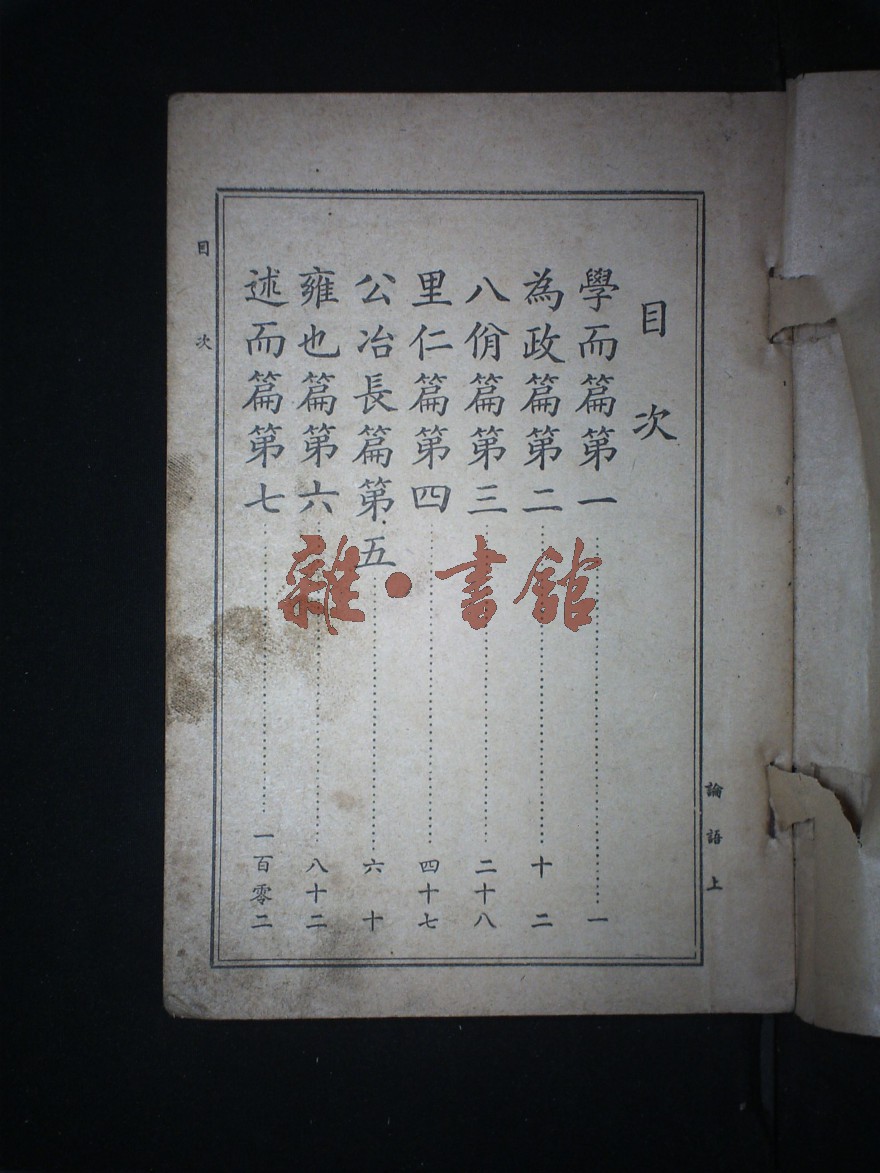 論語上
目次
學而篇第一……一
為政篇第二……十二
八佾篇第三……二十八
里仁篇第四……四十七
公冶長篇第五……六十
雍也篇第六……八十二
述而篇第七……一百零二
目次
雜·書館